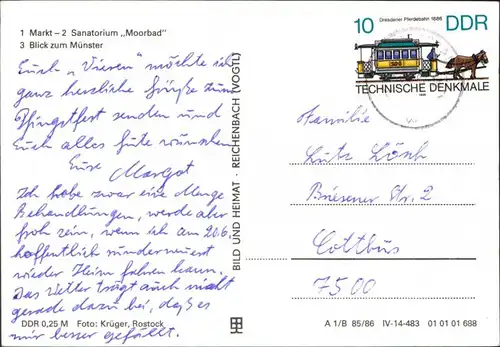 1 Markt – 2 Sanatorium „Moorbad"
3 Blick zum Münster
Euch „Vieren" möchte ich
ganz herzliche Grüße zum
Pfingstfest senden und
Euch alles Gute wünschen
Eure Margot
Ich habe zwar eine Menge
Behandlungen, werde aber
froh sein, wenn ich am 20.6.
hoffentlich runderneuert
wieder Heim fahren kann.
Das Wetter trägt auch nicht
gerade dazu bei, daß es
mir besser gefällt.
DDR 0,25 M Foto: Krüger, Rostock
BILD UND HEIMAT · REICHENBACH (VOGTL)
Dresdener Pferdebahn 1886
10 DDR
TECHNISCHE DENKMALE
Familie
Lutz Lösch
Briesener Str. 2
Cottbus
7500
A 1/B 85/86 IV-14-483 01 01 01 688